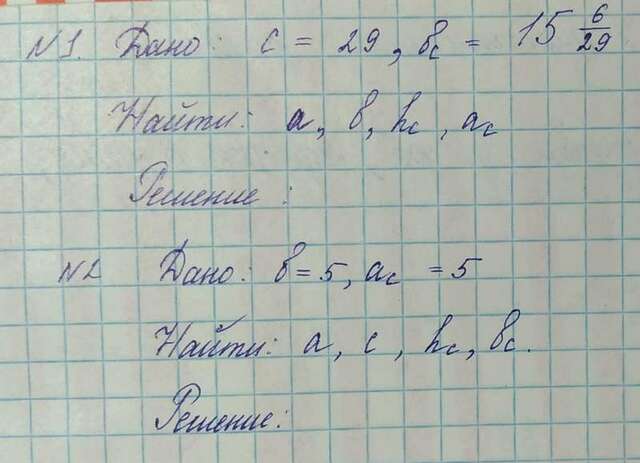 N1. Дано: c = 29, bc = 15 6/29
Найти: a, b, hc, ac
Решение:
N2 Дано: b = 5, ac = 5
Найти: a, c, hc, bc.
Решение: